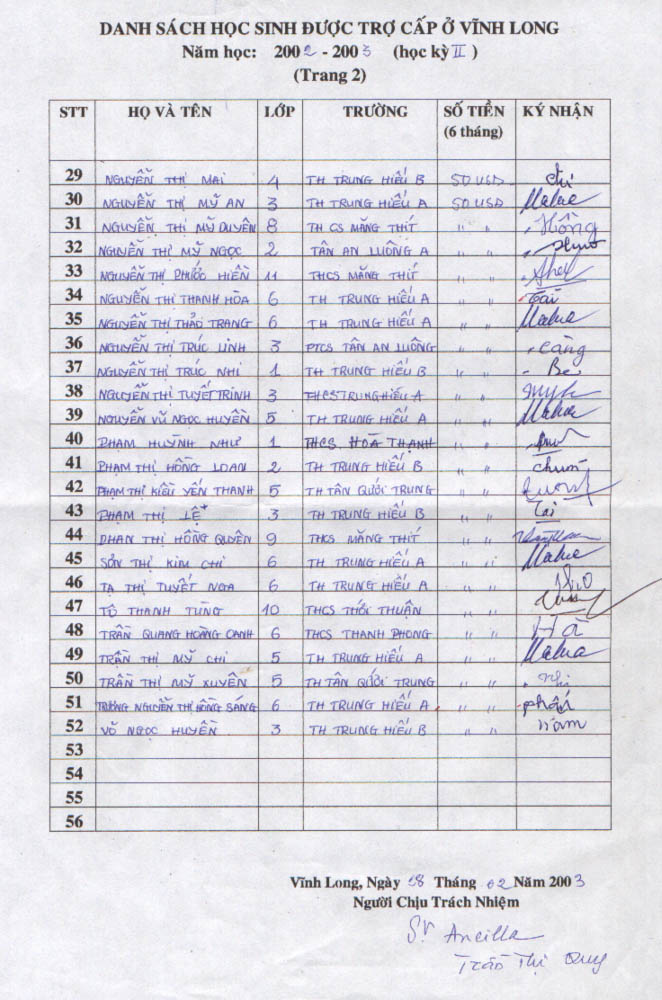 DANH SÁCH HỌC SINH ĐƯỢC TRỢ CẤP Ở VĨNH LONG
Năm học: 2002 - 2003 (học kỳ II )
(Trang 2)
STT HỌ VÀ TÊN LỚP TRƯỜNG SỐ TIỀN (6 tháng) KÝ NHẬN
29 NGUYỄN THỊ MAI 4 TH TRUNG HIẾU B 50 USD
30 NGUYỄN THỊ MỸ AN 3 TH TRUNG HIẾU A 50 USD
31 NGUYỄN THỊ MỸ DUYÊN 8 TH CS MĂNG THÍT " " Hồng
32 NGUYỄN THỊ MỸ NGỌC 2 TÂN AN LUÔNG A " "
33 NGUYỄN THỊ PHƯỚC HIỀN 11 THCS MĂNG THÍT " "
34 NGUYỄN THỊ THANH HÒA 6 TH TRUNG HIẾU A " " Tài
35 NGUYỄN THỊ THẢO TRANG 6 TH TRUNG HIẾU A " "
36 NGUYỄN THỊ TRÚC LINH 3 PTCS TÂN AN LUÔNG " " càng
37 NGUYỄN THỊ TRÚC NHI 1 TH TRUNG HIẾU B " " Bé
38 NGUYỄN THỊ TUYẾT TRINH 3 THCS TRUNG HIẾU A " "
39 NGUYỄN VŨ NGỌC HUYỀN 5 TH TRUNG HIẾU A " "
40 PHẠM HUỲNH NHƯ 1 THCS HÒA THẠNH " "
41 PHẠM THỊ HỒNG LOAN 2 TH TRUNG HIẾU B " "
42 PHẠM THỊ KIỀU YẾN THANH 5 TH TÂN QUỚI TRUNG " "
43 PHẠM THỊ LỆ 3 TH TRUNG HIẾU B " "
44 PHAN THỊ HỒNG QUYÊN 9 THCS MĂNG THÍT " "
45 SƠN THỊ KIM CHI 6 TH TRUNG HIẾU A " "
46 TẠ THỊ TUYẾT NGA 6 TH TRUNG HIẾU A " "
47 TÔ THANH TÙNG 10 THCS THỚI THUẬN " "
48 TRẦN QUANG HOÀNG OANH 6 THCS THANH PHONG " " Hà
49 TRẦN THỊ MỸ CHI 5 TH TRUNG HIẾU A " "
50 TRẦN THỊ MỸ XUYÊN 5 TH TÂN QUỚI TRUNG " " Nhi
51 TRƯƠNG NGUYỄN THỊ HỒNG SÁNG 6 TH TRUNG HIẾU A " "
52 VÕ NGỌC HUYỀN 3 TH TRUNG HIẾU B " " năm
53
54
55
56
Vĩnh Long, Ngày 28 Tháng 02 Năm 2003
Người Chịu Trách Nhiệm
Sr Ancilla
Trần Thị Quy